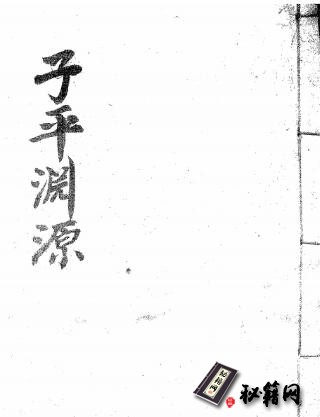 子平淵源
秘籍网